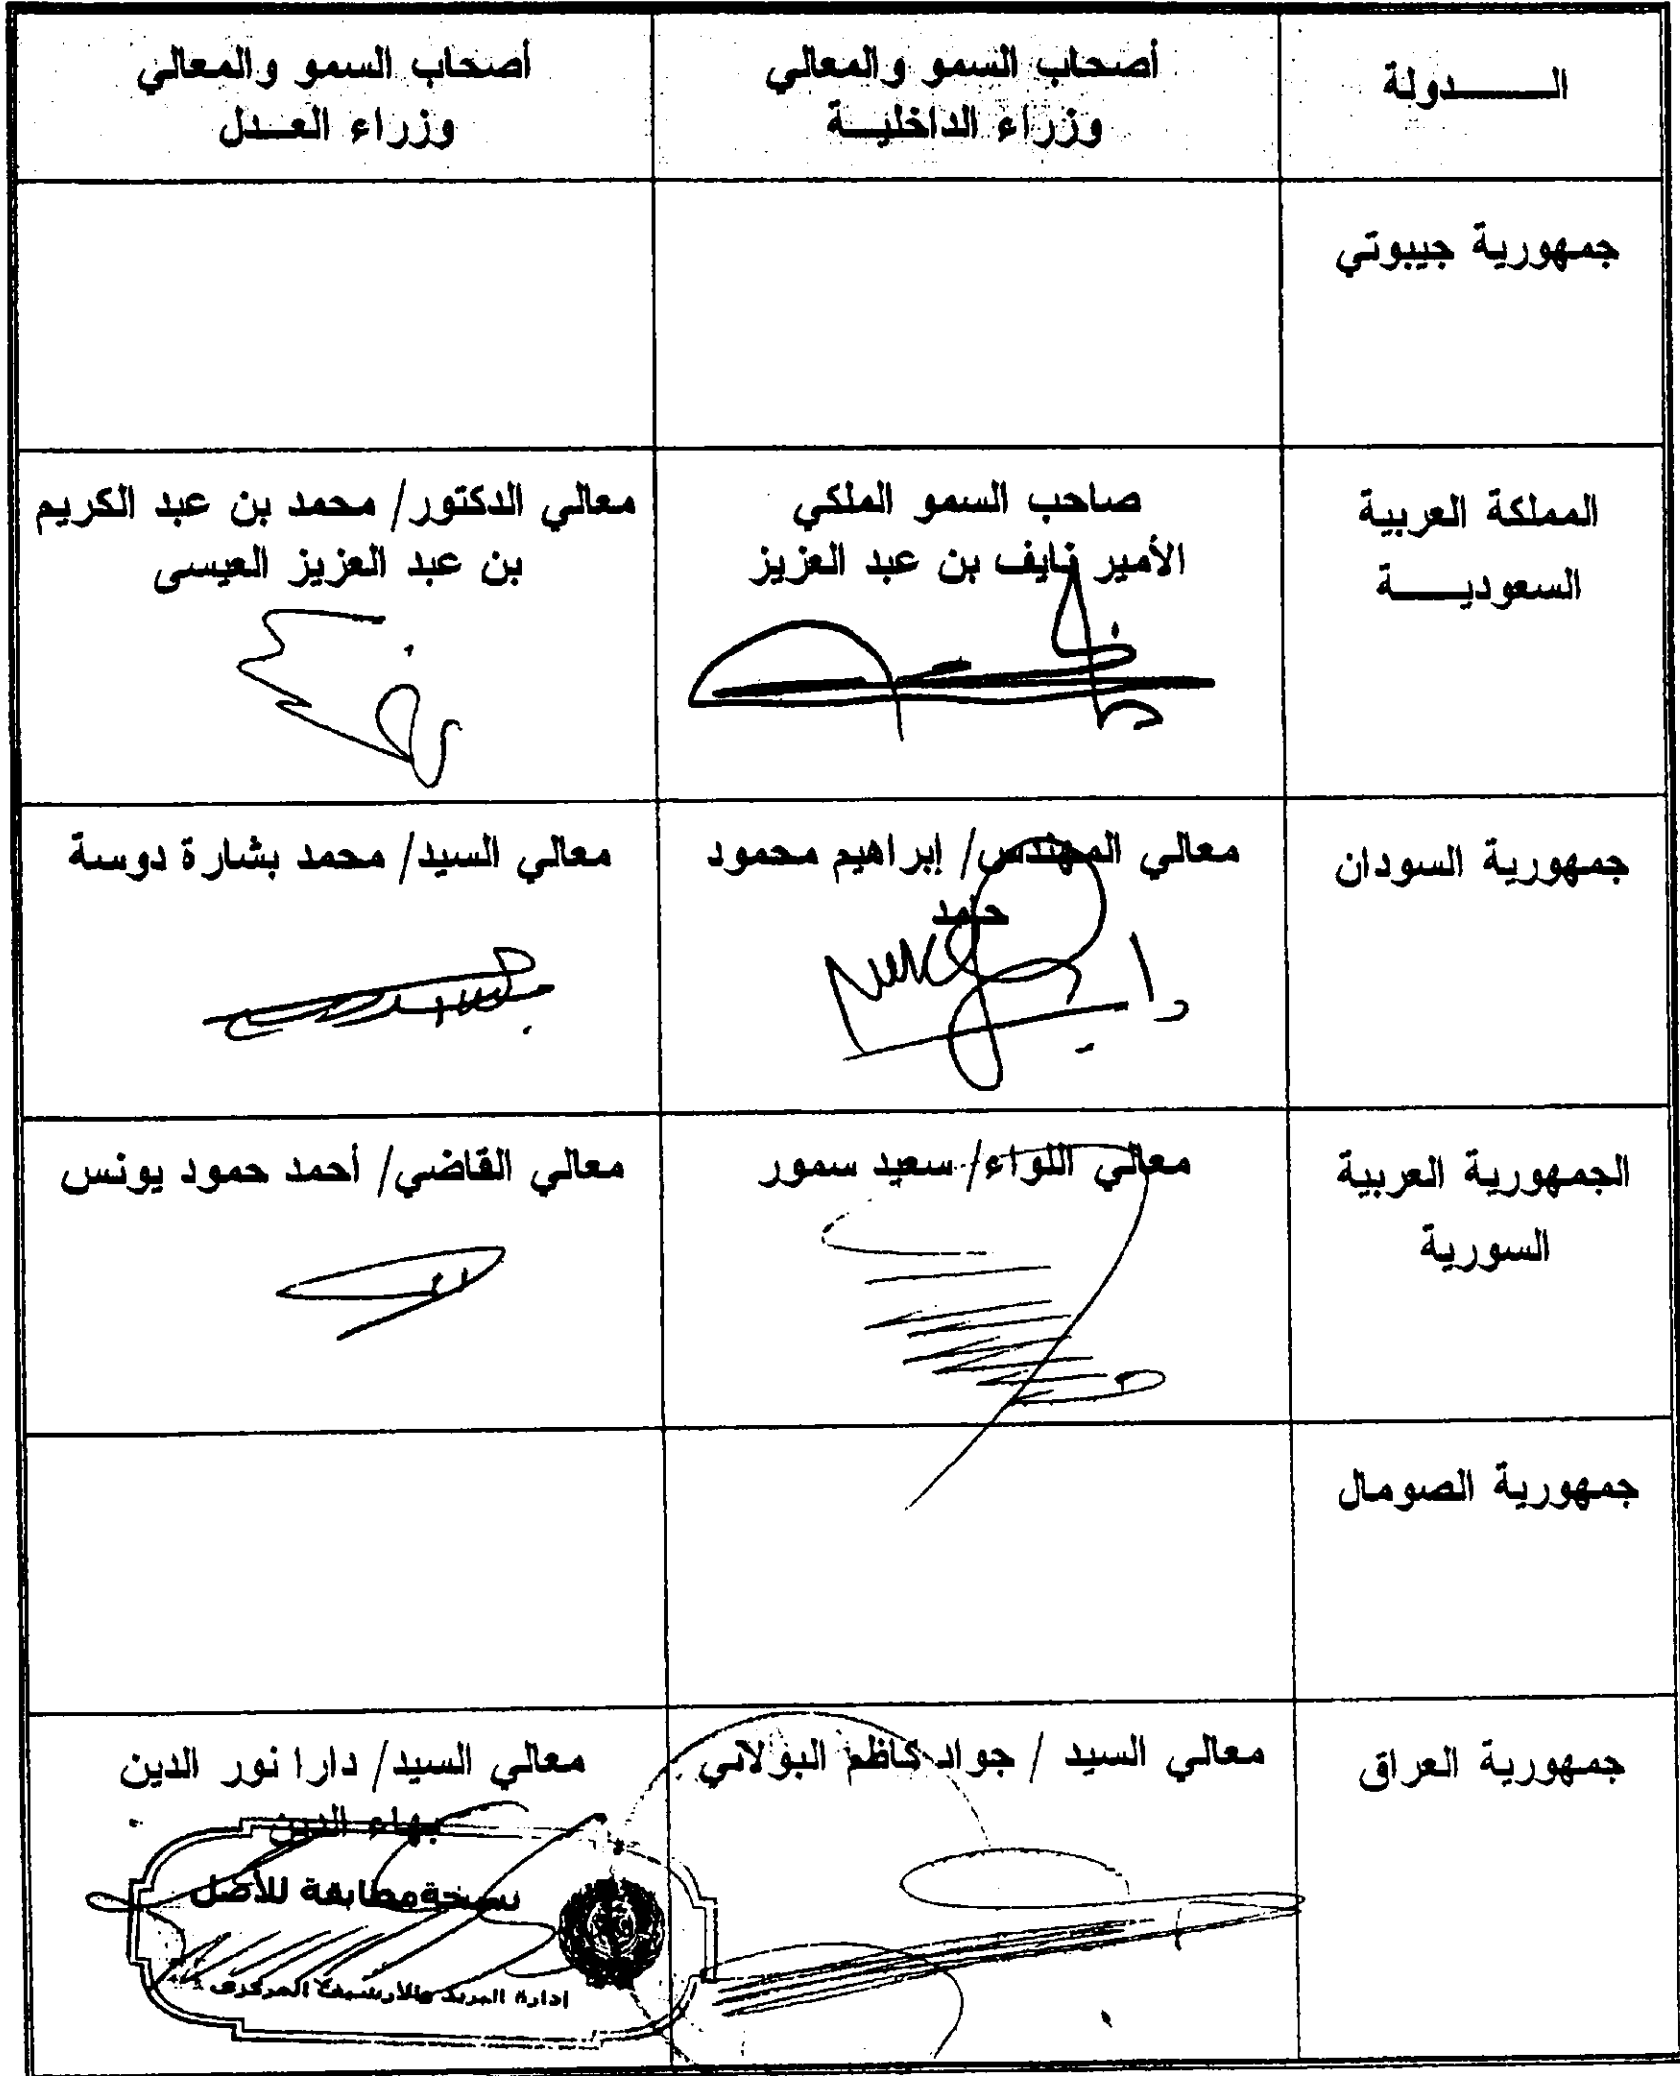 الـــــــدولة
أصحاب السمو والمعالي
وزراء الداخليـــة
أصحاب السمو والمعالي
وزراء العـــدل
جمهورية جيبوتي
المملكة العربية
السعوديـــــة
صاحب السمو الملكي
الأمير نايف بن عبد العزيز
معالي الدكتور/ محمد بن عبد الكريم
بن عبد العزيز العيسى
جمهورية السودان
معالي المهندس/ إبراهيم محمود
حامد
معالي السيد/ محمد بشارة دوسة
الجمهورية العربية
السورية
معالي اللواء/ سعيد سمور
معالي القاضي/ أحمد حمود يونس
جمهورية الصومال
جمهورية العراق
معالي السيد / جواد كاظم البولاني
معالي السيد/ دارا نور الدين
بهاء الدين
نسخة مطابقة للأصل
إدارة البريد والأرشيف المركزى